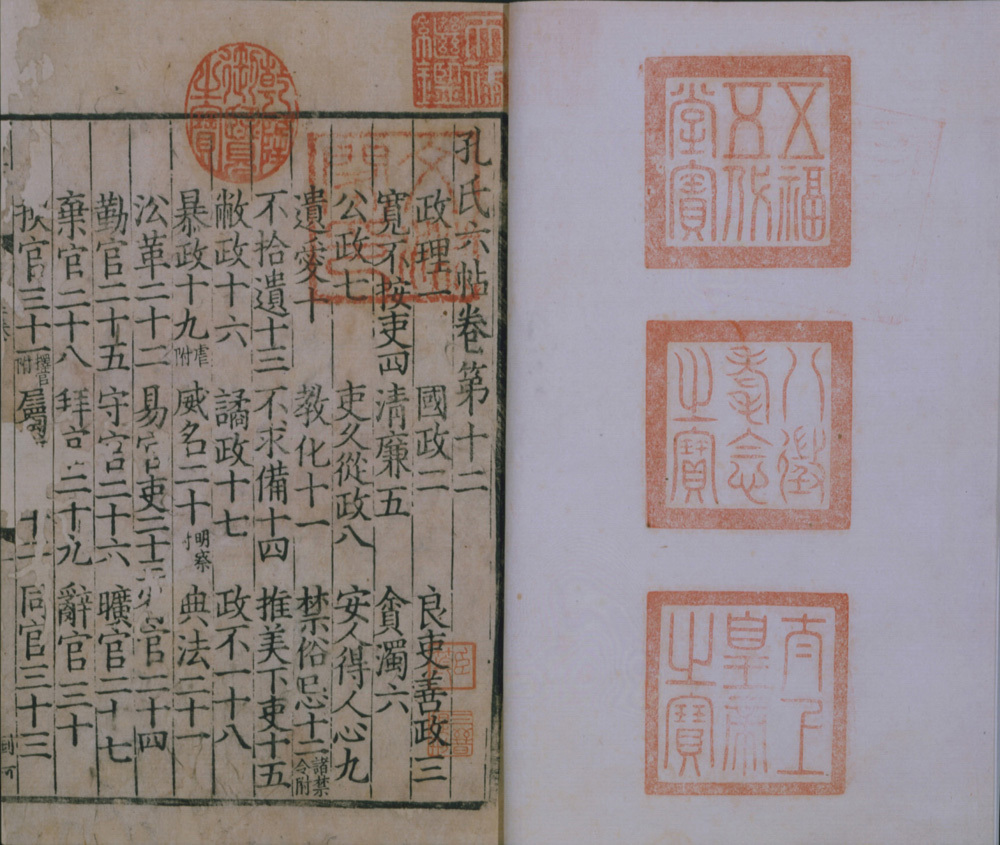 五福
五代
堂寶
八徵
耄念
之寶
太上
皇帝
之寶
天祿
繼鑑
乾隆
御覽
之寶
孔氏六帖卷第十二
政理一 國政二 良吏善政三
寬不按吏四 清廉五 貪濁六
公政七 吏久從政八 安人得人心九
遺愛十 教化十一 禁俗忌十二 諸禁令附
不拾遺十三 不求備十四 推美下吏十五
敝政十六 譎政十七 政不一十八
暴政十九 虐附 威名二十 明察 典法二十一
㳂革二十二 易官吏二十三 官二十四
勤官二十五 守官二十六 曠官二十七
棄官二十八 拜官二十九 辭官三十
官三十一 擢官附 屬 十二 同官三十三